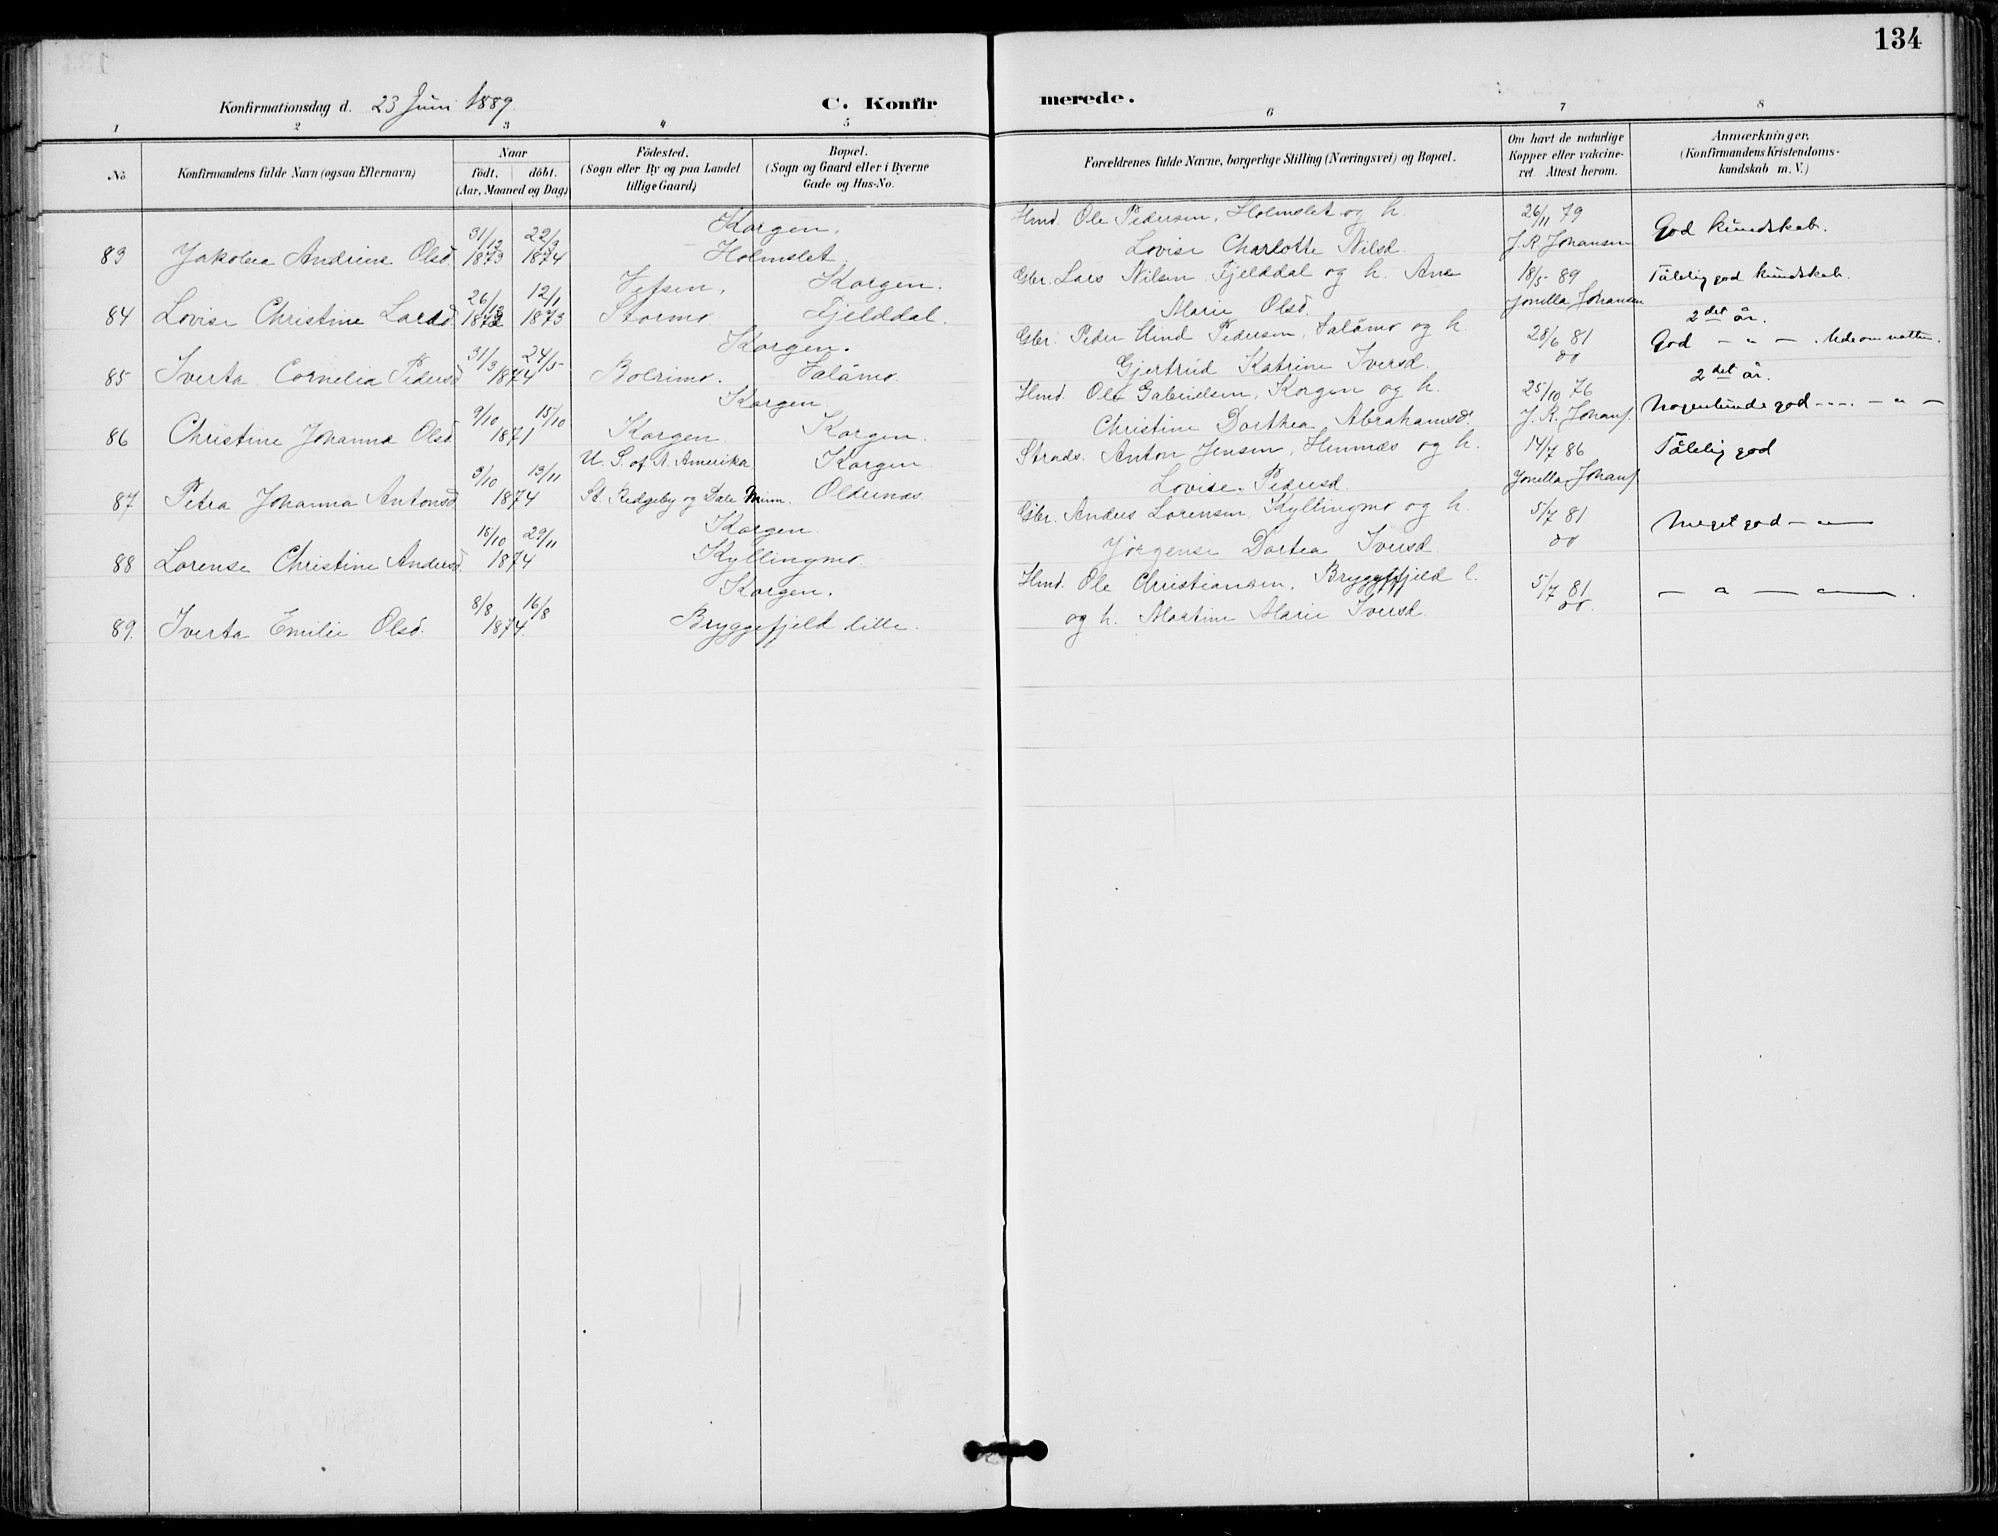 134
Konfirmationsdag d. 23 Juni 1889.
C. Konfirmerede.
1 2 3 4 5 6 7 8
No
Konfirmandens fulde Navn (ogsaa Efternavn)
Naar
födt. döbt.
(Aar, Maaned og Dag)
Födested.
(Sogn eller By og paa Landet
tillige Gaard)
Bopæl.
(Sogn og Gaard eller i Byerne
Gade og Hus-No.
Forældrenes fulde Navne, borgerlige Stilling (Næringsvei) og Bopæl.
Om havt de naturlige
Kopper eller vakcine-
ret. Attest herom.
Anmærkninger.
(Konfirmandens Kristendoms-
kundskab m. V.)
Korgen. Hmd. Ole Pedersen, Holmslet og h. 26/11 79
83 Jakobea Andrine Olsd. 31/12 1873 22/3 1874 Holmslet Lovise Charlotte Nilsd. J. R. Johansen God kundskab.
Vefsen, Korgen. Gbr. Lars Nilsen Fjelddal og h. Ane 18/5 89 Tålelig god kundskab.
84 Lovise Christine Larsd. 26/12 1872 12/1 1873 Stormo Fjelddal. Marie Olsd. Jonella Johansen 2det år.
Korgen. Gbr. Peder Hmd Pedersen, Salåmo og h. 28/6 81 God — " —
85 Iverta Cornelia Pedersd 31/3 24/5 1874 Bolrimo. Salåmo. Gjertrud Katrine Iversd. do 2det år.
Korgen Hmd. Ole Gabrielsen, Korgen og h. 25/10 76
86 Christine Johanna Olsd 9/10 15/10 1871 Korgen Korgen. Christine Dorthea Abrahamsd. J. R. Johans. Nogenlunde god — " —
U. S. of N. Amerika Korgen. Strads. Anton Jensen, Hemnæs og h. 14/7 86 Tålelig god
87 Petra Johanna Antonsd 3/10 13/11 1874 St. Ridgeby og Dale Minn. Oldernæs Lovise Pedersd. Jonella Johans.
Korgen Gbr. Anders Lorensen, Kyllingmo og h. 5/7 81 Meget god — " —
88 Lorense Christine Andersd 15/10 29/11 1874 Kyllingmo. Jørgense Dortea Iversd. do
Korgen. Hmd. Ole Christiansen, Bryggefjeld l. 5/7 81 — " — " — .
89. Iverta Emilie Olsd. 8/8 16/8 1874. Bryggefjeld lille. og h. Martine Marie Iversd. do.